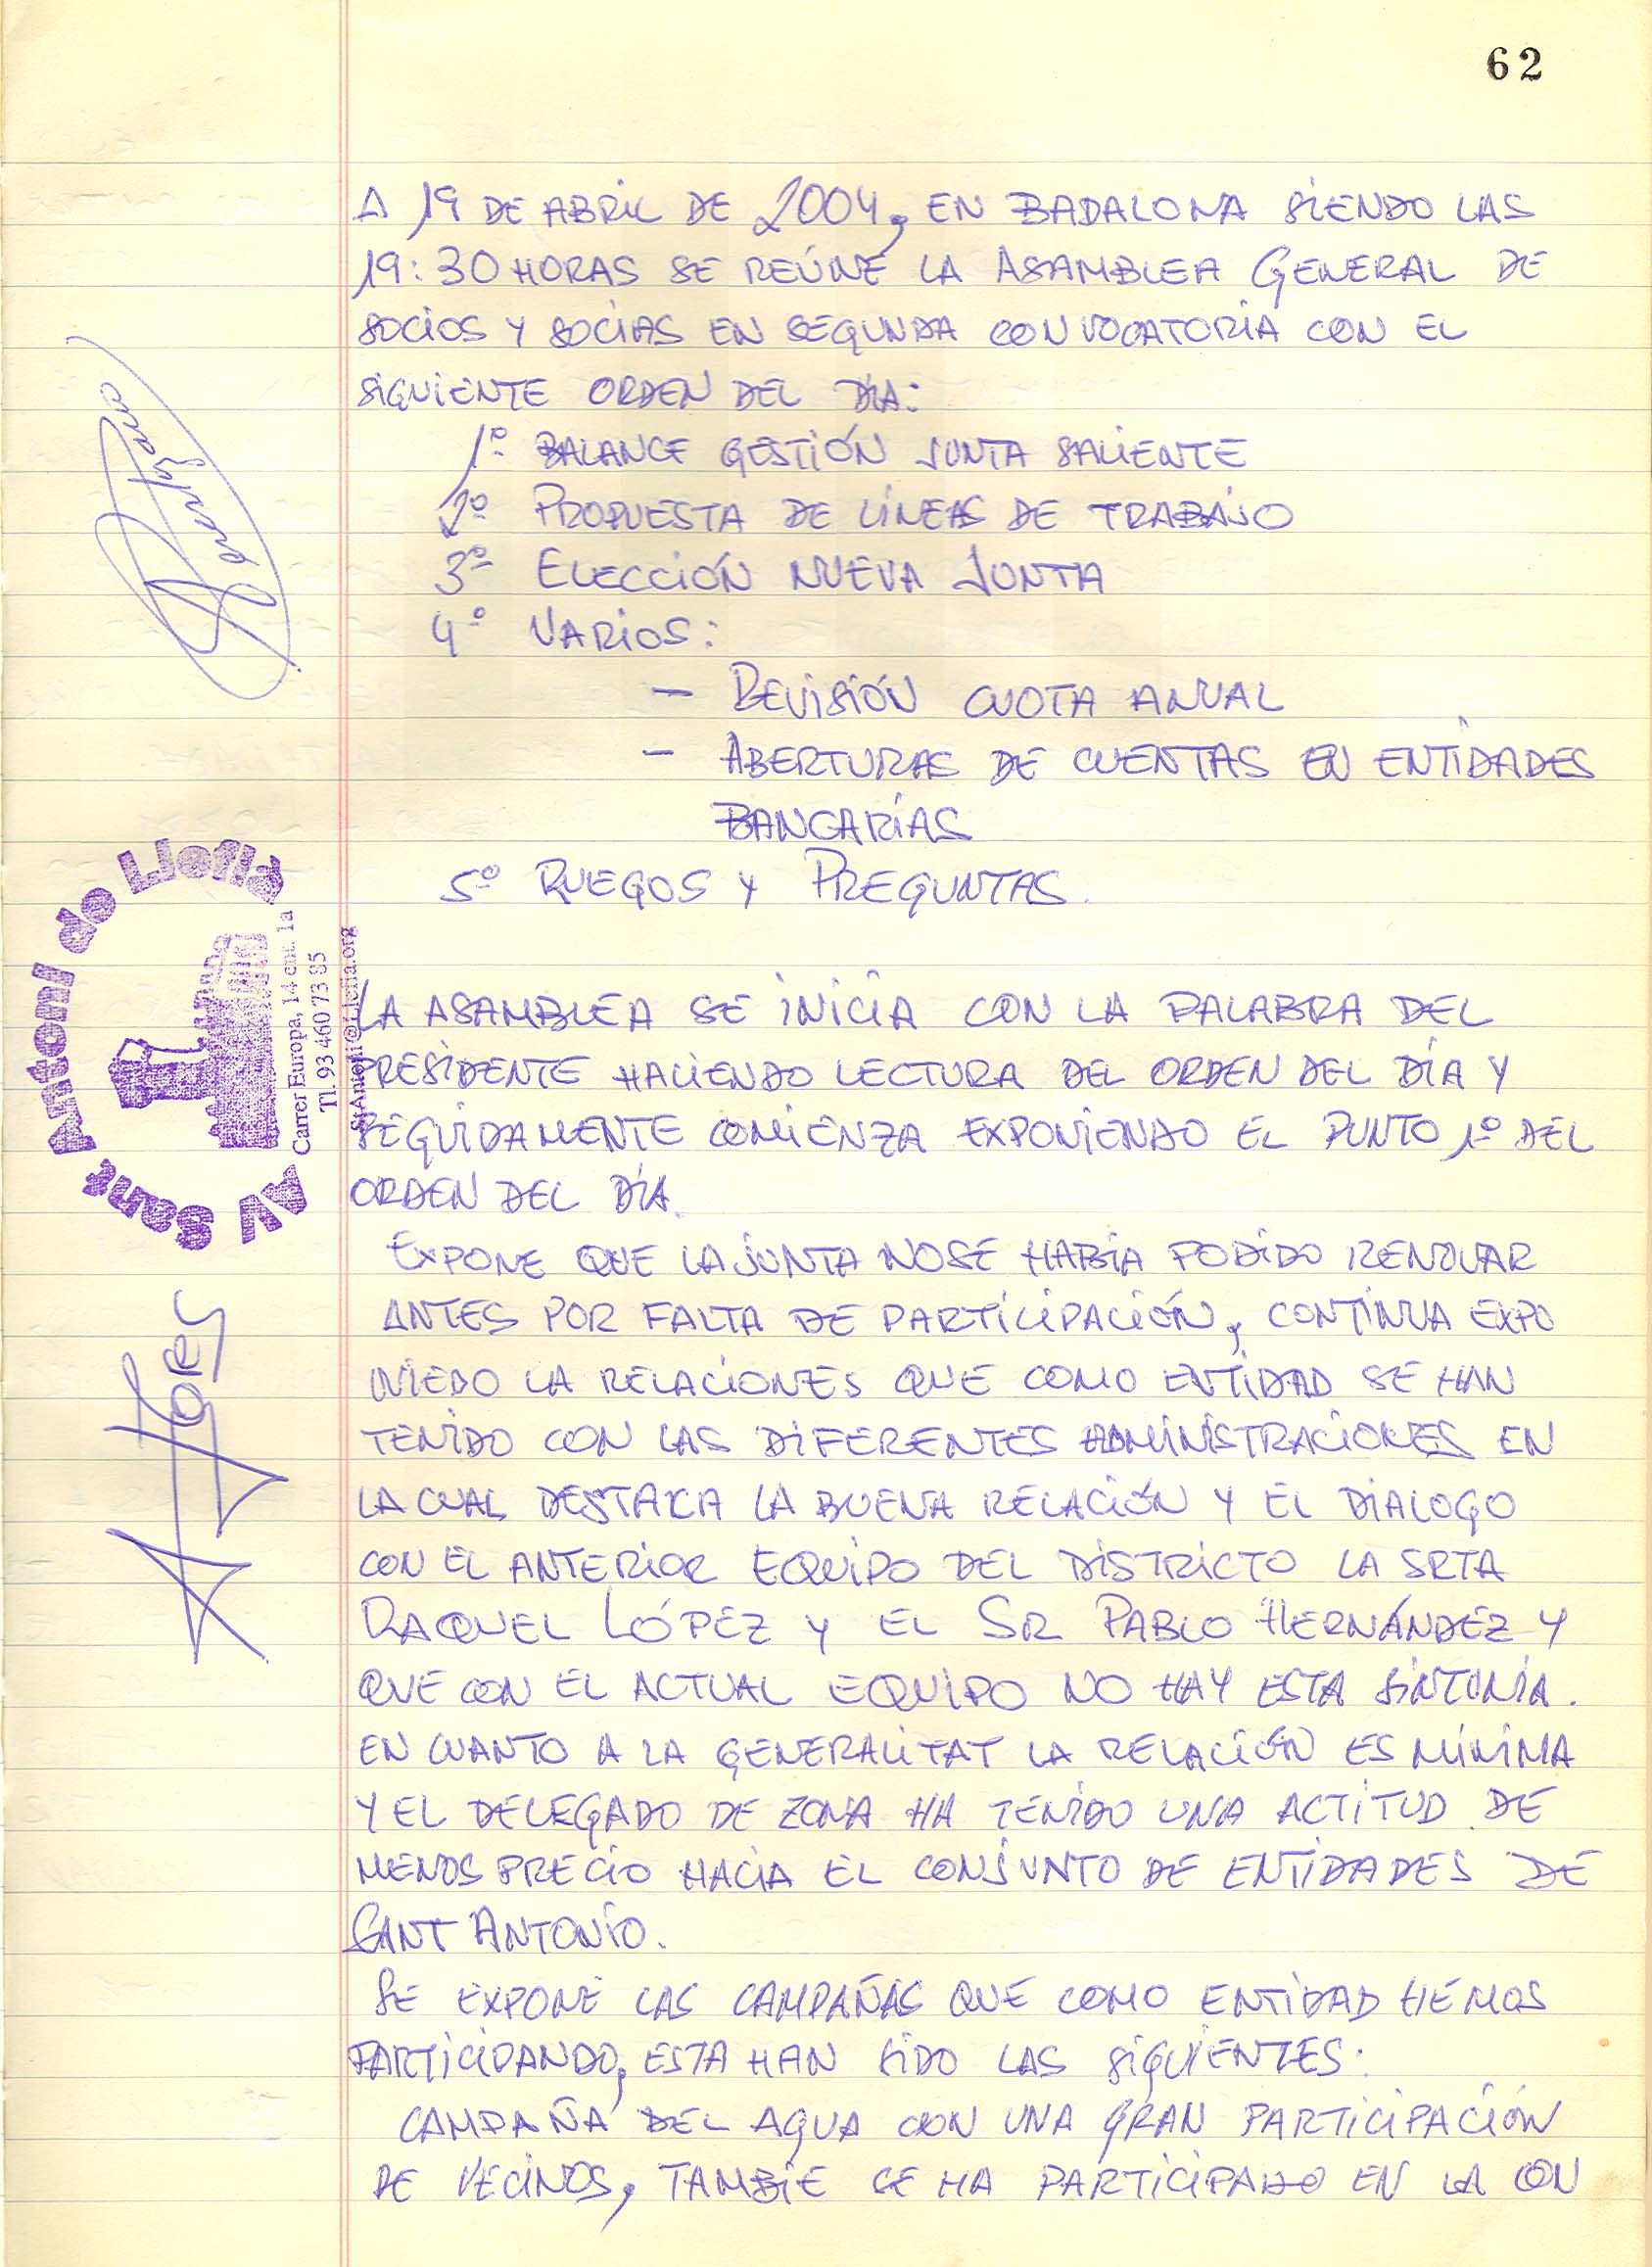 62
A 19 DE ABRIL DE 2004, EN BADALONA SIENDO LAS
19:30 HORAS SE REÚNE LA ASAMBLEA GENERAL DE
SOCIOS Y SOCIAS EN SEGUNDA CONVOCATORIA CON EL
SIGUIENTE ORDEN DEL DÍA:
1º BALANCE GESTIÓN JUNTA SALIENTE
2º PROPUESTA DE LÍNEAS DE TRABAJO
3º ELECCIÓN NUEVA JUNTA
4º VARIOS:
— REVISIÓN CUOTA ANUAL
— ABERTURAS DE CUENTAS EN ENTIDADES
BANCARÍAS
5º RUEGOS Y PREGUNTAS.
LA ASAMBLEA SE INICIA CON LA PALABRA DEL
PRESIDENTE HACIENDO LECTURA DEL ORDEN DEL DÍA Y
SEGUIDAMENTE COMIENZA EXPONIENDO EL PUNTO 1º DEL
ORDEN DEL DÍA.
EXPONE QUE LA JUNTA NO SE HABÍA PODIDO RENOVAR
ANTES POR FALTA DE PARTICIPACIÓN, CONTINUA EXPO
NIEDO LA RELACIONES QUE COMO ENTIDAD SE HAN
TENIDO CON LAS DIFERENTES ADMINISTRACIONES EN
LA CUAL DESTACA LA BUENA RELACIÓN Y EL DIALOGO
CON EL ANTERIOR EQUIPO DEL DISTRICTO LA SRTA
RAQUEL LÓPEZ Y EL SR PABLO HERNÁNDEZ Y
QUE CON EL ACTUAL EQUIPO NO HAY ESTA SINTONÍA.
EN CUANTO A LA GENERALITAT LA RELACIÓN ES MÍNIMA
Y EL DELEGADO DE ZONA HA TENIDO UNA ACTITUD DE
MENOS PRECIO HACIA EL CONJUNTO DE ENTIDADES DE
SANT ANTONIO.
SE EXPONE LAS CAMPAÑAS QUE COMO ENTIDAD HEMOS
PARTICIPANDO, ESTA HAN SIDO LAS SIGUIENTES:
CAMPAÑA DEL AGUA CON UNA GRAN PARTICIPACIÓN
DE VECINOS, TAMBIE SE HA PARTICIPADO EN LA CON
AV Sant Antoni de Llefià
Carrer Europa, 14 ent. 1a
Tl. 93 460 73 85
StAntoni@Llefia.org
Flores